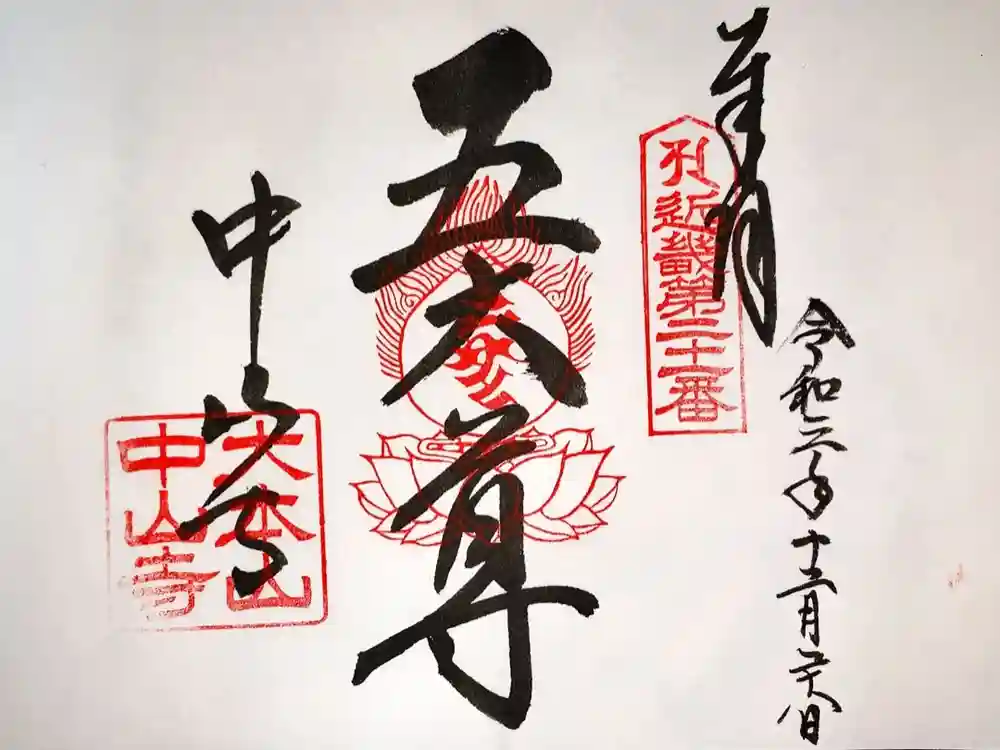 奉拝
近畿第二十一番
令和二年十二月二十八日
五大尊
中山寺
大本山
中山寺